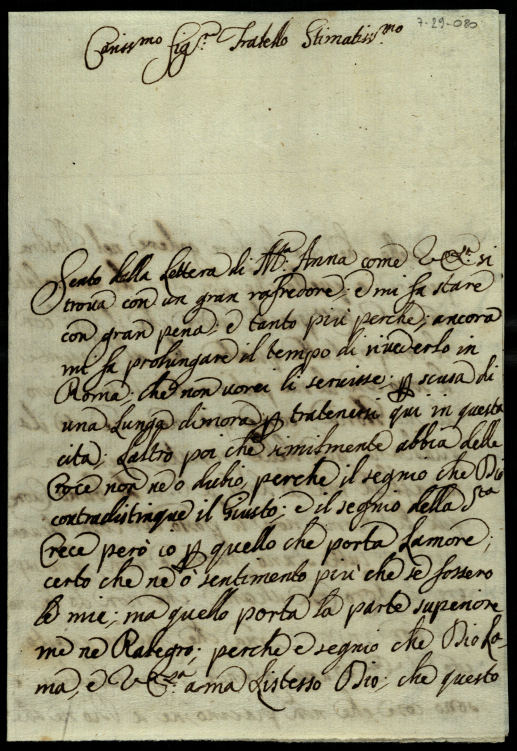 7-29-080
Carissmo Sigr. Fratello Stimatissmo
Sento della Lettera di Mta. Anna come V.Eza. si
trova con un gran rafredore; e mi fa stare
con gran pena; e tanto più perche; ancora
mi fa prolungare il tempo di rivederlo in
Roma; che non vorei li servisse; p scusa di
una Lunga dimora p tratenersi qui in questa
cita; Laltro poi che similmente abbia delle
Croce non ne o dubio, perche il segnio che Dio
contradistingue il Giusto; e il segnio della Sta
Croce però io p quello che porta Lamore;
certo che ne ò sentimento più che se fossero
le mie; ma quello porta la parte superiore
me ne Ralegro; perche e segnio che Dio La-
ma, e V.Eza. ama Listesso Dio; che questo